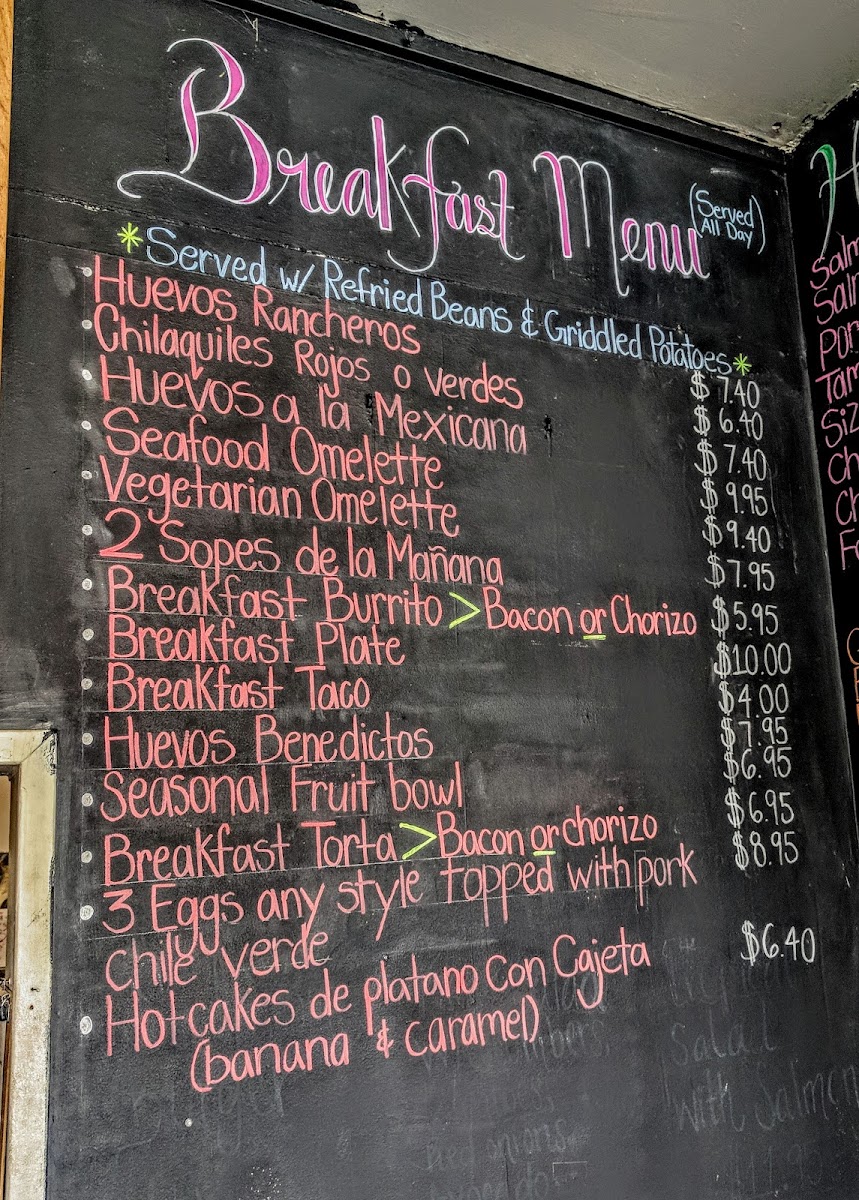 Breakfast Menu (Served All Day)
*Served w/ Refried Beans & Griddled Potatoes*
Huevos Rancheros $7.40
Chilaquiles Rojos o verdes $6.40
Huevos a la Mexicana $7.40
Seafood Omelette $9.95
Vegetarian Omelette $9.40
2 Sopes de la Mañana $7.95
Breakfast Burrito > Bacon or Chorizo $5.95
Breakfast Plate $10.00
Breakfast Taco $4.00
Huevos Benedictos $7.95
Seasonal Fruit bowl $6.95
Breakfast Torta > Bacon or chorizo $6.95
3 Eggs any style topped with pork $8.95
chile verde
Hotcakes de platano con Cajeta $6.40
(banana & caramel)
Salad
with Salmon
red onions